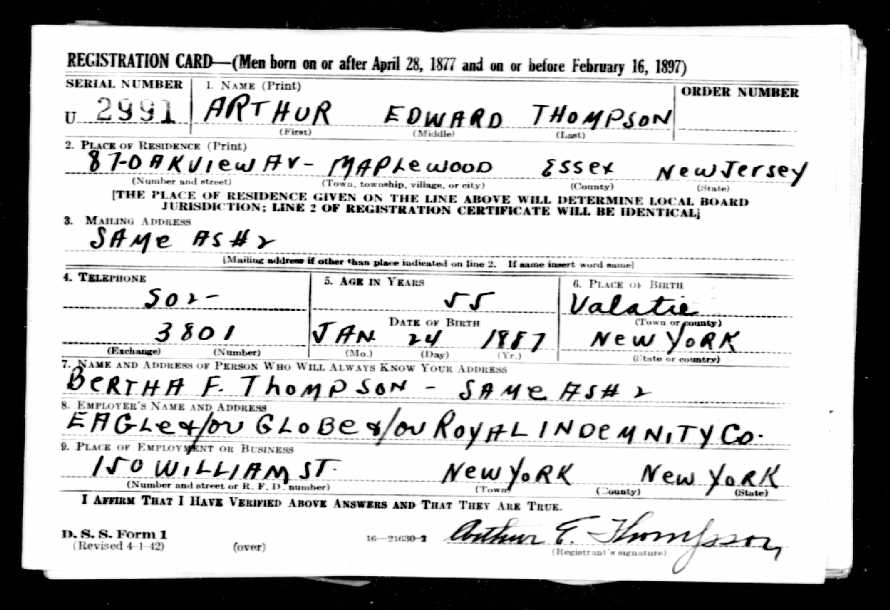 REGISTRATION CARD—(Men born on or after April 28, 1877 and on or before February 16, 1897)
SERIAL NUMBER 1. NAME (Print) ORDER NUMBER
U 2991 ARTHUR EDWARD THOMPSON
(First) (Middle) (Last)
2. PLACE OF RESIDENCE (Print)
87-OAKVIEW AV- MAPLEWOOD ESSEX NEW JERSEY
(Number and street) (Town, township, village, or city) (County) (State)
[THE PLACE OF RESIDENCE GIVEN ON THE LINE ABOVE WILL DETERMINE LOCAL BOARD
JURISDICTION; LINE 2 OF REGISTRATION CERTIFICATE WILL BE IDENTICAL]
3. MAILING ADDRESS
SAME AS #2
[Mailing address if other than place indicated on line 2. If same insert word same]
4. TELEPHONE 5. AGE IN YEARS 6. PLACE OF BIRTH
SO2- 55 Valatie
DATE OF BIRTH (Town or county)
3801 JAN 24 1887 NEW YORK
(Exchange) (Number) (Mo.) (Day) (Yr.) (State or country)
7. NAME AND ADDRESS OF PERSON WHO WILL ALWAYS KNOW YOUR ADDRESS
BERTHA F. THOMPSON - SAME AS #2
8. EMPLOYER'S NAME AND ADDRESS
EAGLE &/OR GLOBE &/OR ROYAL INDEMNITY CO.
9. PLACE OF EMPLOYMENT OR BUSINESS
150 WILLIAM ST. NEW YORK NEW YORK
(Number and street or R. F. D. number) (Town) (County) (State)
I AFFIRM THAT I HAVE VERIFIED ABOVE ANSWERS AND THAT THEY ARE TRUE.
D. S. S. Form 1
(Revised 4-1-42) (over) 16—21630-2 Arthur E. Thompson
(Registrant's signature)